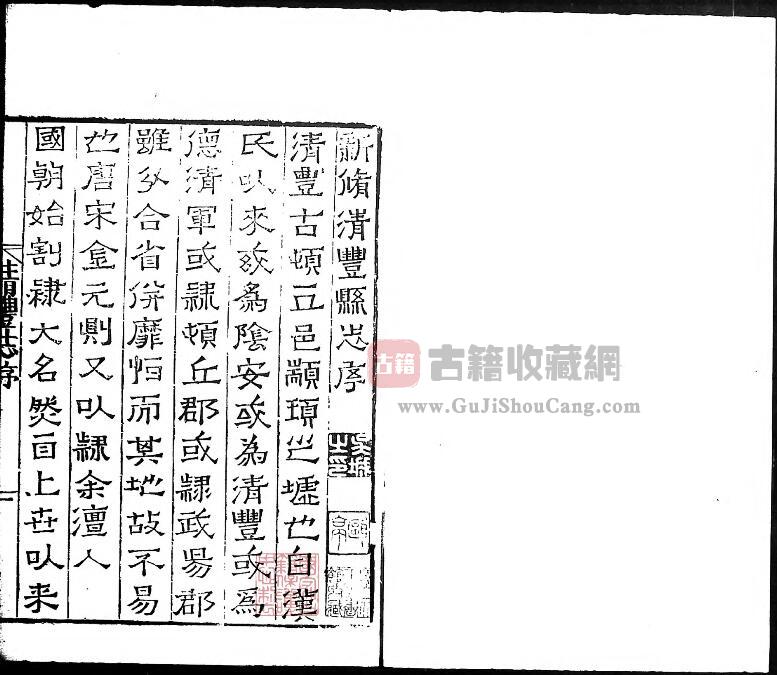 新脩清豐縣志序
清豐古頓丘邑顓頊之墟也自漢
民以來或為陰安或為清豐或為
德清軍或隸頓丘郡或隸武陽郡
雖分合省併靡恒而其地故不易
也唐宋金元則又以隸余澶人
國朝始割隸大名然自上世以來
清豐志序
古籍
古籍收藏網
www.GuJiShouCang.com